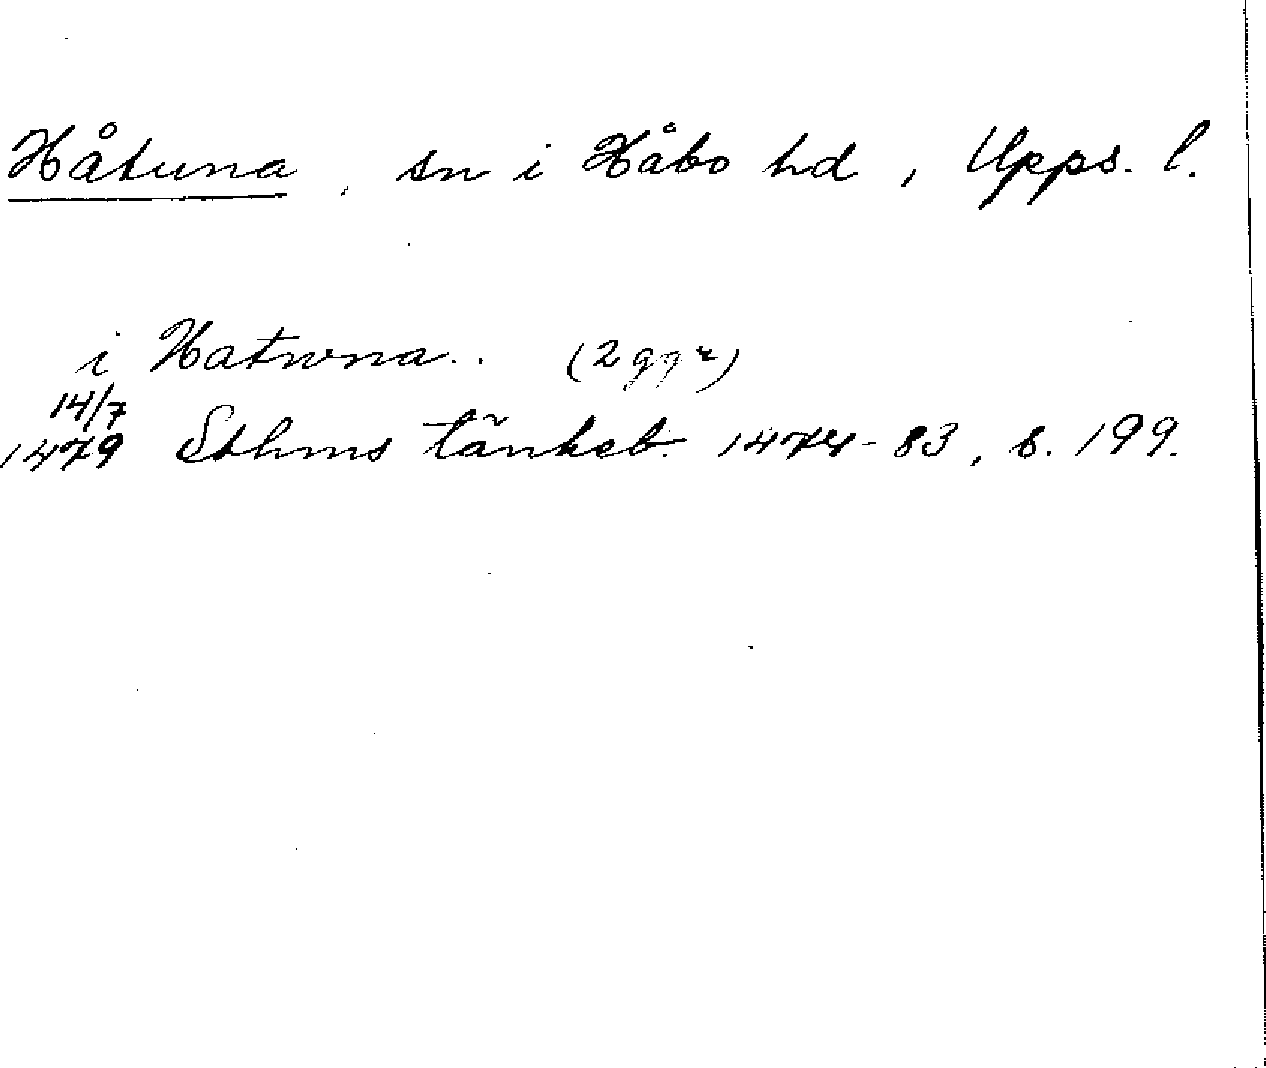 Håtuna, sn i Håbo hd, Upps. l.
i Hatwna.. (2 ggr)
14/7
1479 Sthms tänkeb. 1474-83, s. 199.